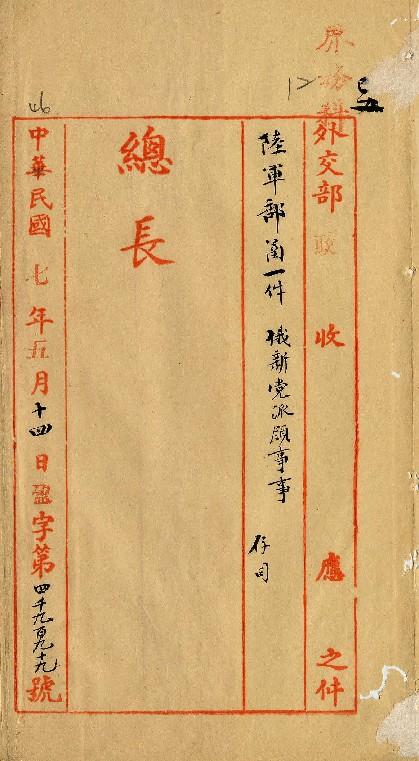 界務科
12
46
外交部收 收 應 之件
陸軍部函一件 俄新党派領事事
存司
總長
中華民國七年五月十四日盈字第四千九百九十九號